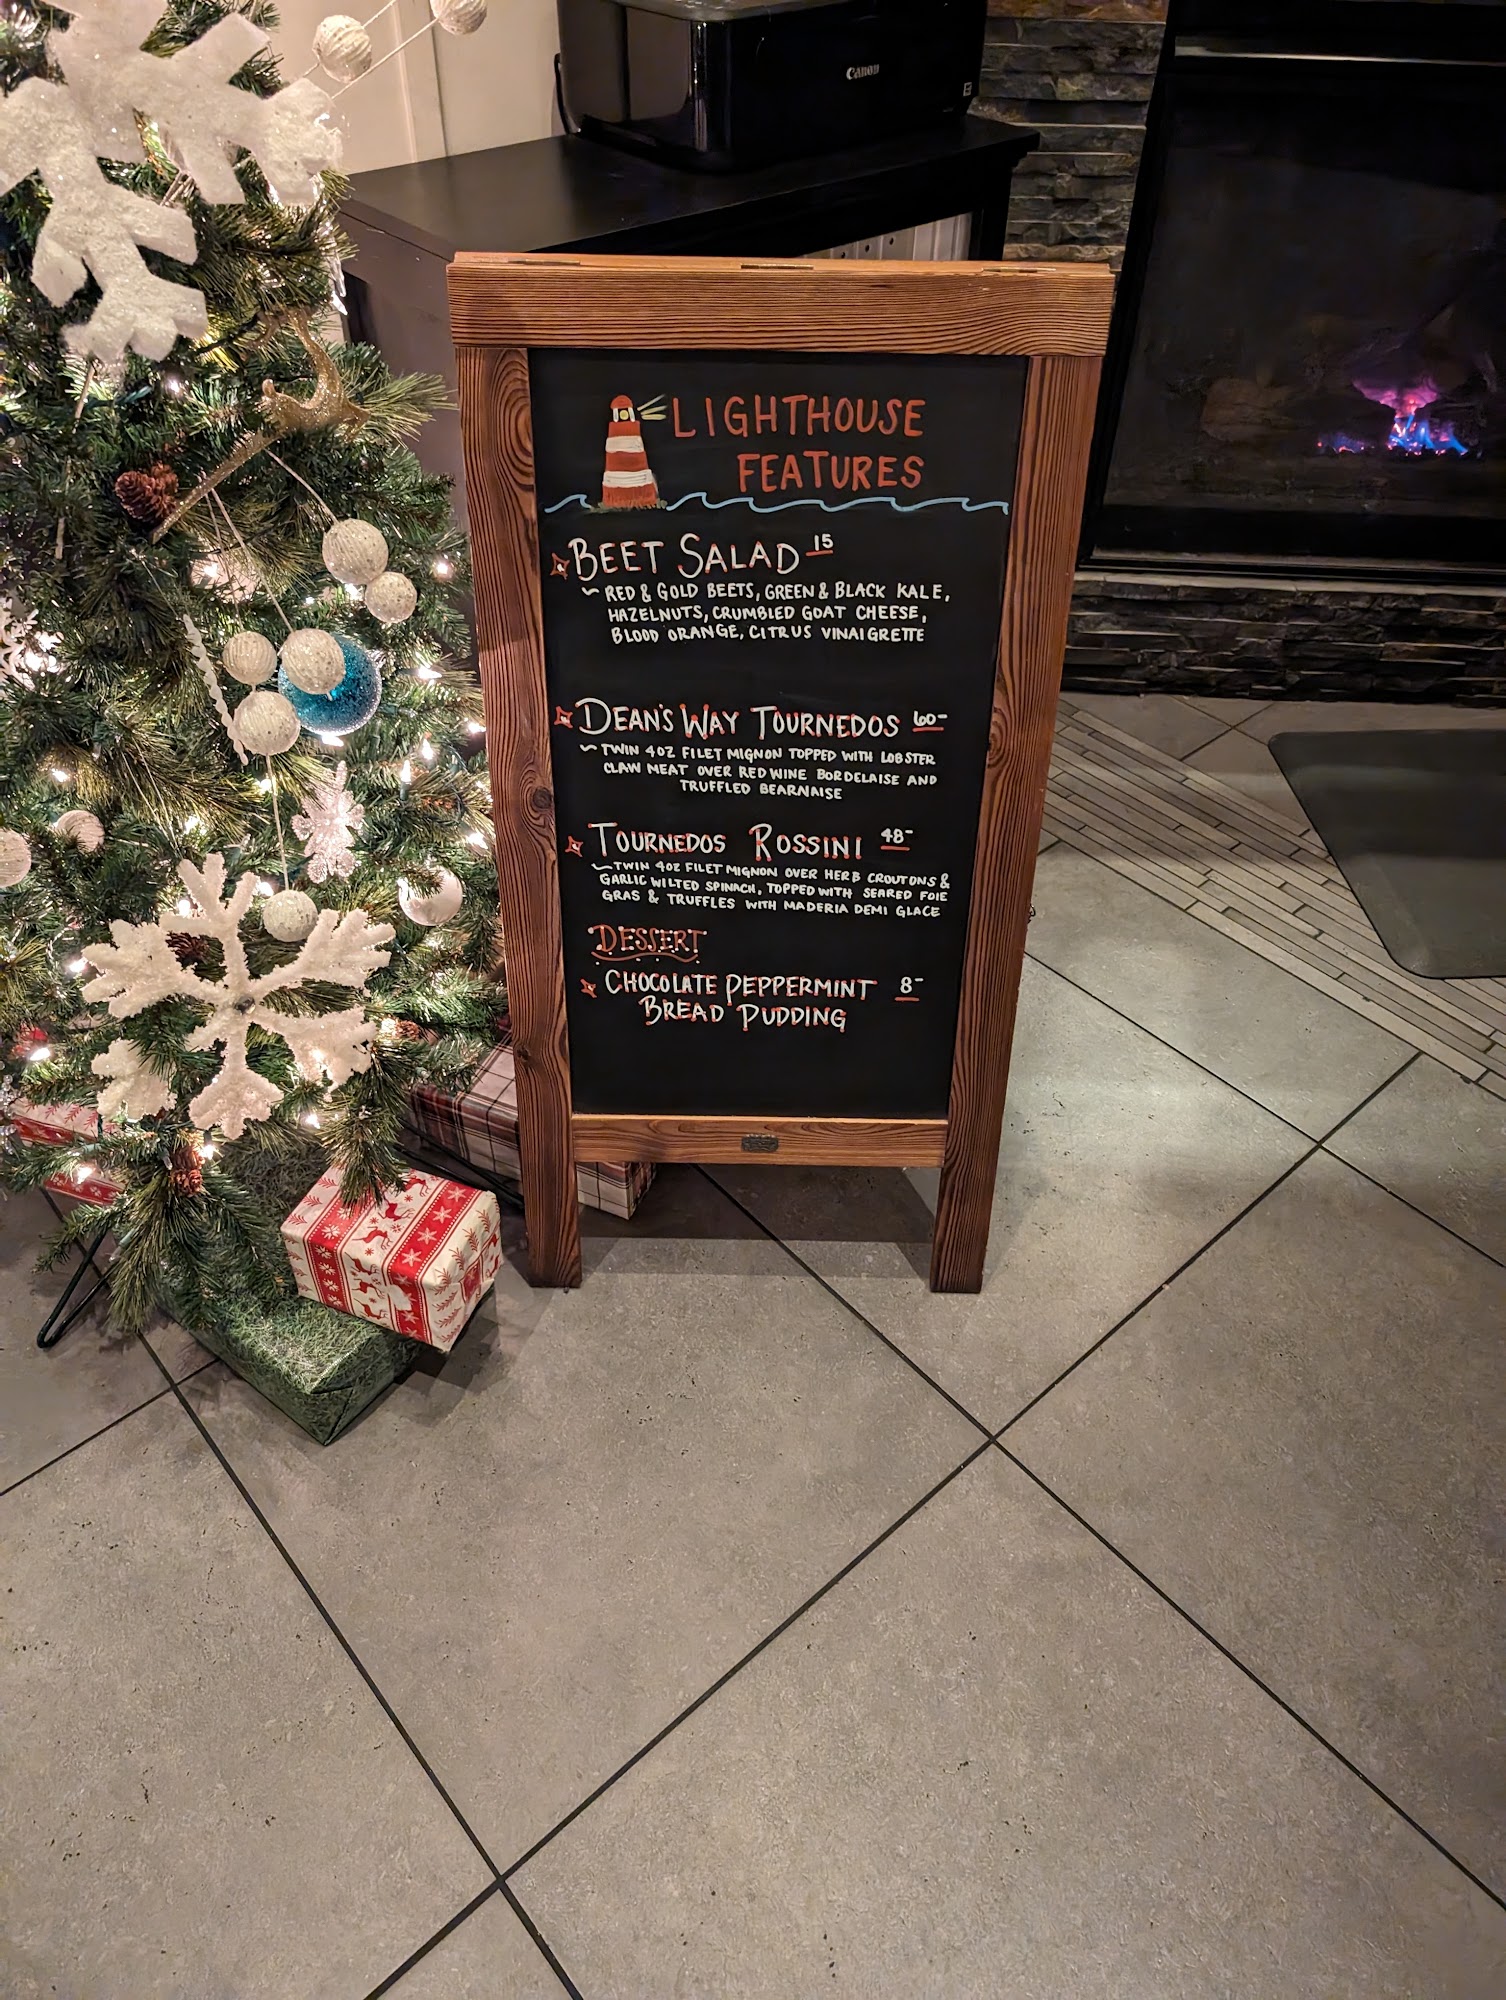 Canon
LIGHTHOUSE
FEATURES
BEET SALAD 15
~ RED & GOLD BEETS, GREEN & BLACK KALE,
HAZELNUTS, CRUMBLED GOAT CHEESE,
BLOOD ORANGE, CITRUS VINAIGRETTE
DEAN'S WAY TOURNEDOS 60-
~ TWIN 4OZ FILET MIGNON TOPPED WITH LOBSTER
CLAW MEAT OVER RED WINE BORDELAISE AND
TRUFFLED BEARNAISE
TOURNEDOS ROSSINI 48-
~ TWIN 4OZ FILET MIGNON OVER HERB CROUTONS &
GARLIC WILTED SPINACH, TOPPED WITH SEARED FOIE
GRAS & TRUFFLES WITH MADERIA DEMI GLACE
DESSERT
CHOCOLATE PEPPERMINT 8-
BREAD PUDDING